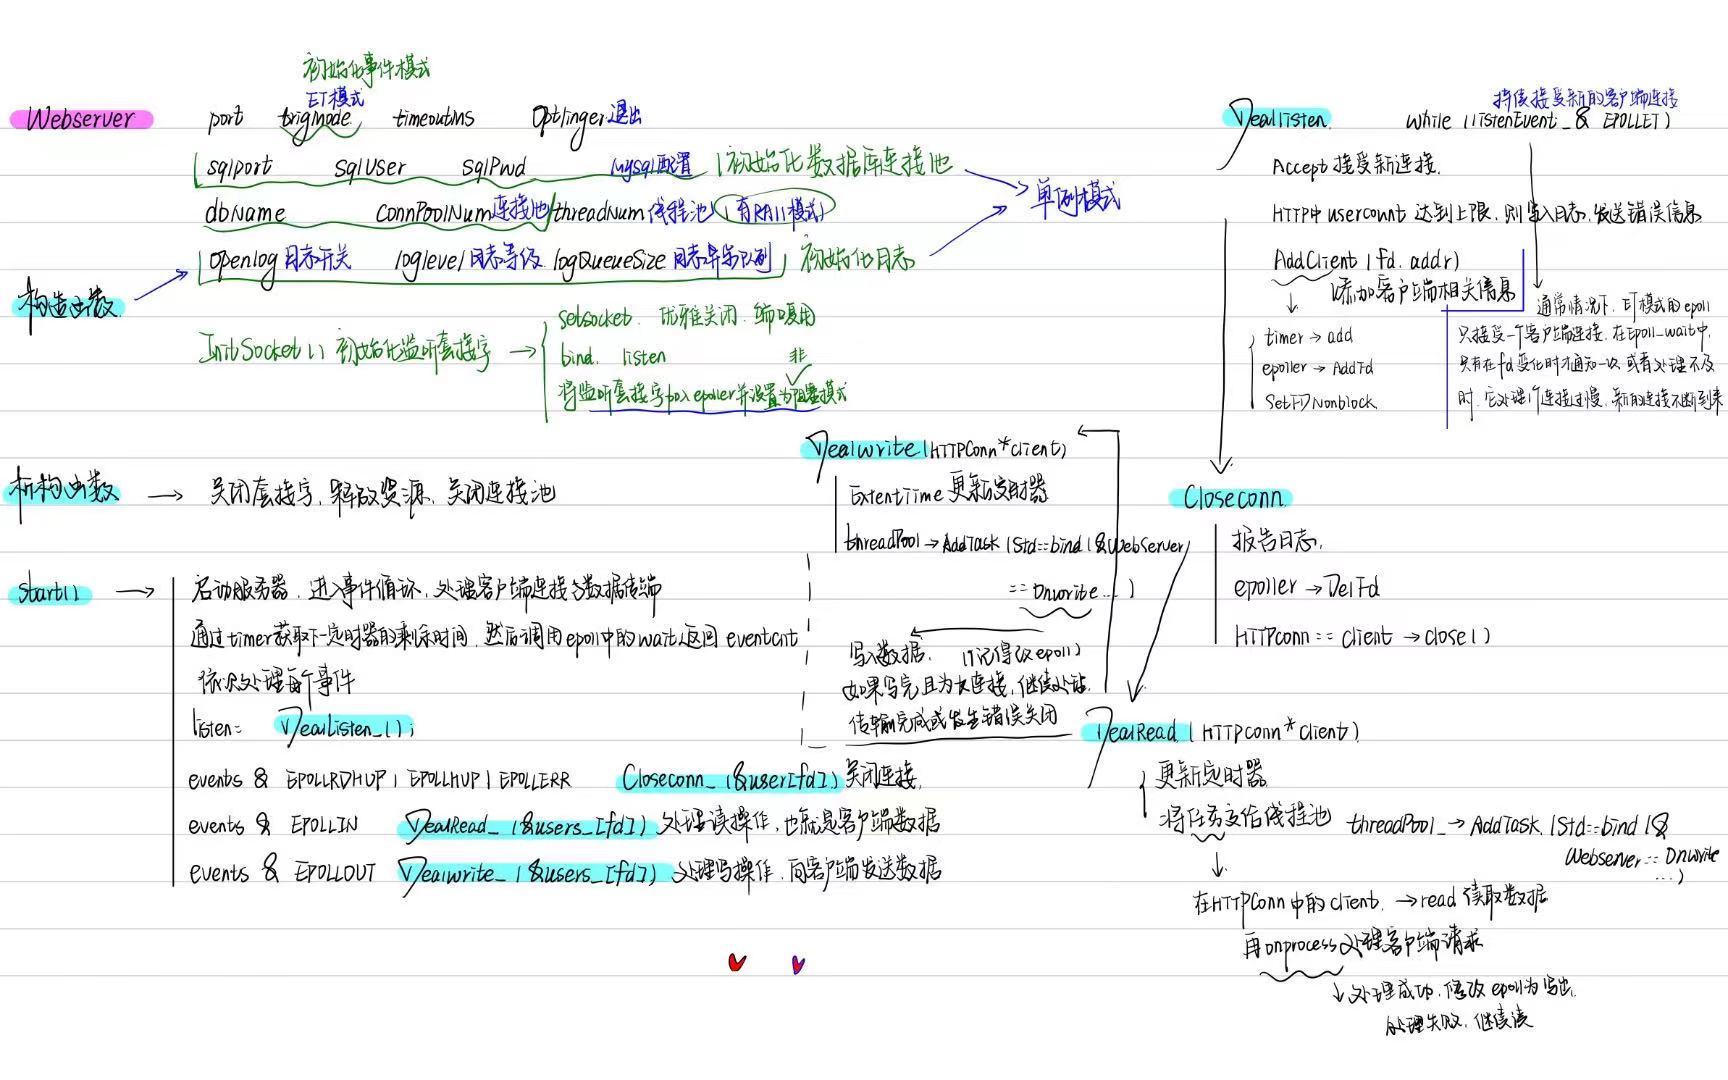 初始化事件模式
ET模式
Webserver port trigmode timeoutms Optlinger退出
sqlport sqlUser sqlPwd mysql配置 初始化数据库连接池
单例模式
dbName connPoolNum连接池 threadNum 线程池 (有RAII模式)
openlog 日志开关 loglevel 日志等级 logQueueSize 日志异步队列 初始化日志
构造函数
InitSocket() 初始化监听套接字 →
setsocket. 优雅关闭. 端口复用
bind. listen
非
将监听套接字加入epoller并设置为阻塞模式
析构函数 → 关闭套接字, 释放资源. 关闭连接池
start() →
启动服务器, 进入事件循环, 处理客户端连接与数据传输
通过timer获取下一定时器的剩余时间, 然后调用epoll中的wait返回 eventcnt
依次处理每个事件
listen: DealListen_();
events & EPOLLRDHUP | EPOLLHUP | EPOLLERR Closeconn_(&user[fd]) 关闭连接,
events & EPOLLIN DealRead_(&users_[fd]) 处理读操作, 也就是客户端数据
events & EPOLLOUT Dealwrite_(&users_[fd]) 处理写操作, 向客户端发送数据
Dealwrite(HTTPConn*client)
ExtentTime 更新定时器
threadPool → AddTask (Std::bind(&Webserver
::Onwrite...)
写入数据. (记得改epoll)
如果写完且为长连接, 继续处理.
传输完成或发生错误关闭
持续接受新的客户端连接
Deallisten. while (listenEvent_& EPOLLET)
Accept 接受新连接.
HTTP中 usercount 达到上限, 则写入日志, 发送错误信息
AddClient (fd, addr)
添加客户端相关信息
↓
timer → add
epoller → AddFd
SetFDNonblock
通常情况下, ET模式的epoll
只接受一个客户端连接, 在epoll_wait中,
只有在fd变化时才通知一次 或者处理不及
时, 它处理个连接过慢, 新的连接不断到来
Closeconn
报告日志,
epoller → DelFd
HTTPconn:: client → close()
DealRead (HTTPconn*client)
更新定时器
将任务交给线程池 threadPool_ → AddTask (Std::bind(&
Webserver:: Onwrite
...)
↓
在HTTPConn中的client. → read 读取数据
再onprocess处理客户端请求
↓ 处理成功, 修改epoll为写出,
处理失败, 继续读